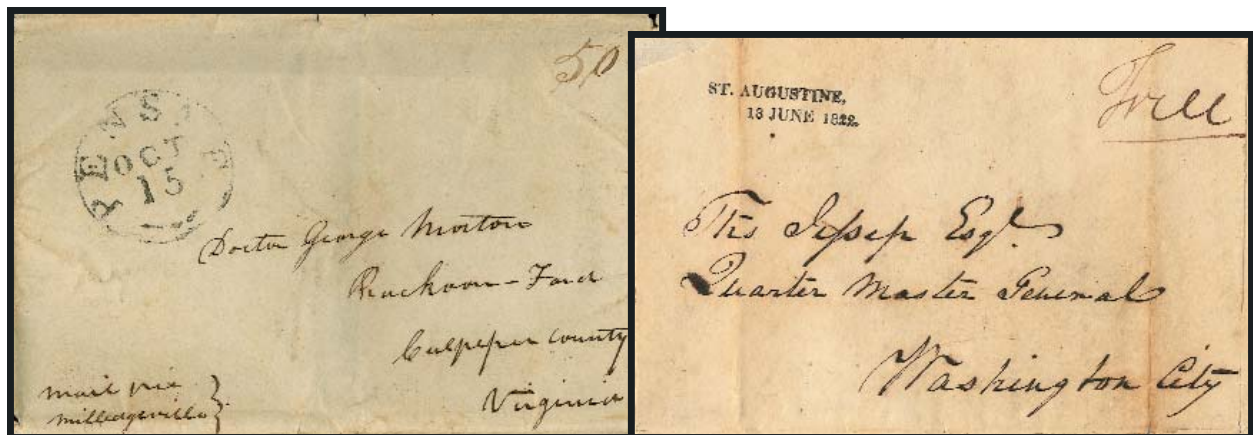 50
PENSA
OCT
15
Doctor George Morton
Rackoon - Ford
Culpeper County
Virginia
mail via
Milledgeville
ST. AUGUSTINE,
13 JUNE 1822.
Free
Ths Jessep Esqr.
Quarter Master General
Washington City